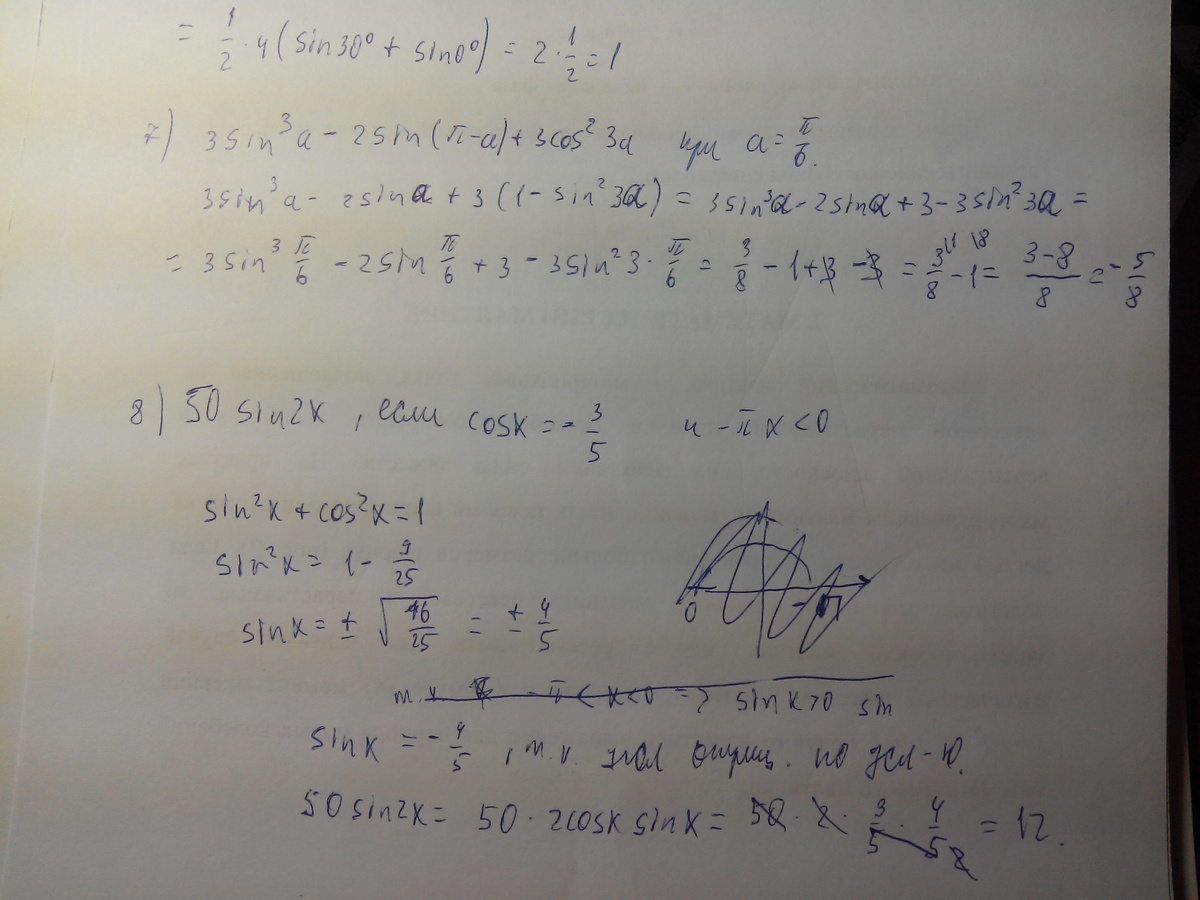 = 1/2 · 4 (sin30° + sin0°) = 2 · 1/2 = 1
7) 3sin³a - 2sin(π-a) + 3cos²3a при a = π/6.
3sin³a - 2sina + 3(1 - sin²3a) = 3sin³a - 2sina + 3 - 3sin²3a =
= 3sin³ π/6 - 2sin π/6 + 3 - 3sin²3 · π/6 = 3/8 - 1 + 3 - 3 = 3/8 - 1 = (3-8)/8 = -5/8
8) 50 sin2x, если cosx = -3/5 и -π x < 0
sin²x + cos²x = 1
sin²x = 1 - 9/25
sinx = ± √(16/25) = ± 4/5
0 -π
т.к. -π < x < 0 => sinx > 0 sin
sinx = -4/5, т.к. угол отриц. по усл-ю.
50 sin2x = 50 · 2cosx sinx = 50 · 2 · 3/5 · 4/5 = 12.